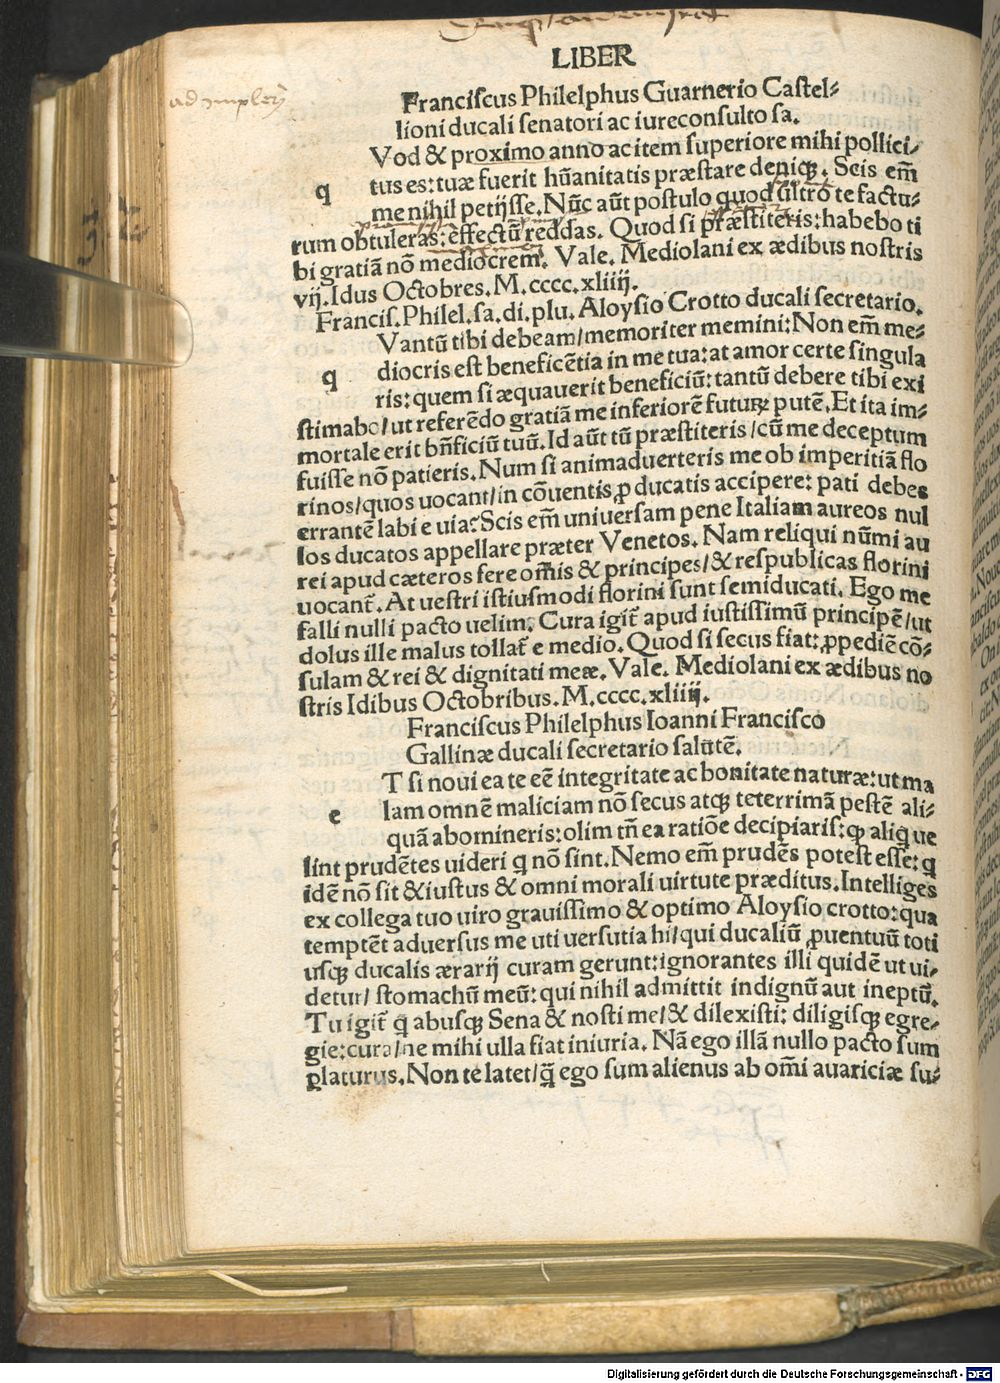 LIBER
Franciscus Philelphus Guarnerio Castel⸗
lioni ducali senatori ac iureconsulto sa.
Vod & proximo anno ac item superiore mihi pollici⸗
q tus es: tuæ fuerit hūanitatis præstare deniqꝫ. Scis em̄
me nihil petijsse. Nūc aūt postulo quod ultro te factu⸗
rum obtuleras: effectū reddas. Quod si præstiteris: habebo ti
bi gratiā nō mediocrem. Vale. Mediolani ex ædibus nostris
vij. Idus Octobres. M. cccc. xliiij.
Francis. Philel. sa. di. plu. Aloysio Crotto ducali secretario.
Vantū tibi debeam/memoriter memini: Non em̄ me⸗
q diocris est beneficētia in me tua: at amor certe singula
ris: quem si æquauerit beneficiū: tantū debere tibi exi
stimabo/ut referēdo gratiā me inferiorē futuꝝ putē. Et ita im⸗
mortale erit bn̄ficiū tuū. Id aūt tū præstiteris/cū me deceptum
fuisse nō patieris. Num si animaduerteris me ob imperitiā flo
rinos/quos uocant/in cōuentis ꝓ ducatis accipere: pati debes
errantē labi e uia? Scis em̄ uniuersam pene Italiam aureos nul
los ducatos appellare præter Venetos. Nam reliqui nūmi au
rei apud cæteros fere om̄is & principes/& respublicas florini
uocant̄. At uestri istiusmodi florini sunt semiducati. Ego me
falli nulli pacto uelim. Cura igit̄ apud iustissimū principē/ut
dolus ille malus tollat̄ e medio. Quod si secus fiat: ꝓpediē cō⸗
sulam & rei & dignitati meæ. Vale. Mediolani ex ædibus no
stris Idibus Octobribus. M. cccc. xliiij.
Franciscus Philelphus Ioanni Francisco
Gallinæ ducali secretario salutē.
T si noui ea te eē integritate ac bonitate naturæ: ut ma
e lam omnē maliciam nō secus atqꝫ teterrimā pestē ali⸗
quā abomineris: olim tn̄ ea ratiōe decipiaris: ꝙ aliq̄ ue
lint prudētes uideri q̄ nō sint. Nemo em̄ prudēs potest esse: q̄
idē nō sit & iustus & omni morali uirtute præditus. Intelliges
ex collega tuo uiro grauissimo & optimo Aloysio crotto: qua
temptēt aduersus me uti uersutia hi/qui ducaliū ꝓuentuū toti
usqꝫ ducalis ærarij curam gerunt: ignorantes illi quidē ut ui⸗
detur/ stomachū meū: qui nihil admittit indignū aut ineptū.
Tu igit̄ q̄ abusqꝫ Sena & nosti me/& dilexisti: diligisqꝫ egre⸗
gie: cura/ne mihi ulla fiat iniuria. Nā ego illā nullo pacto sum
ꝑlaturus. Non te latet/q̄ ego sum alienus ab om̄i auariciæ su⸗
Digitalisierung gefördert durch die Deutsche Forschungsgemeinschaft - DFG